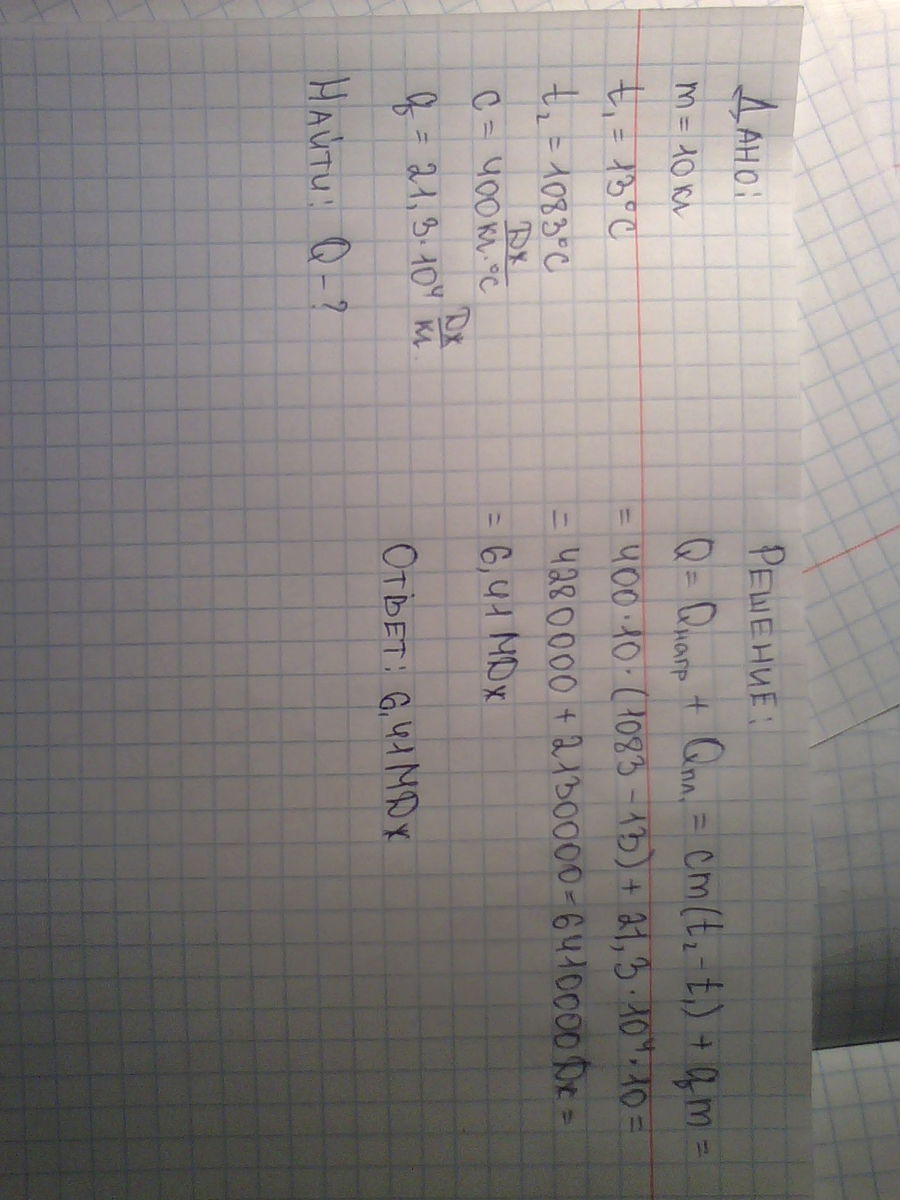 Дано:
m = 10 кг
t₁ = 13°C
t₂ = 1083°C
c = 400 Дж/кг·°C
q = 21,3·10⁴ Дж/кг.
Найти: Q - ?
Решение:
Q = Qнагр + Qпл. = cm(t₂ - t₁) + qm =
= 400·10·(1083 - 13) + 21,3·10⁴·10 =
= 4280000 + 2130000 = 6410000 Дж =
= 6,41 МДж
Ответ: 6,41 МДж